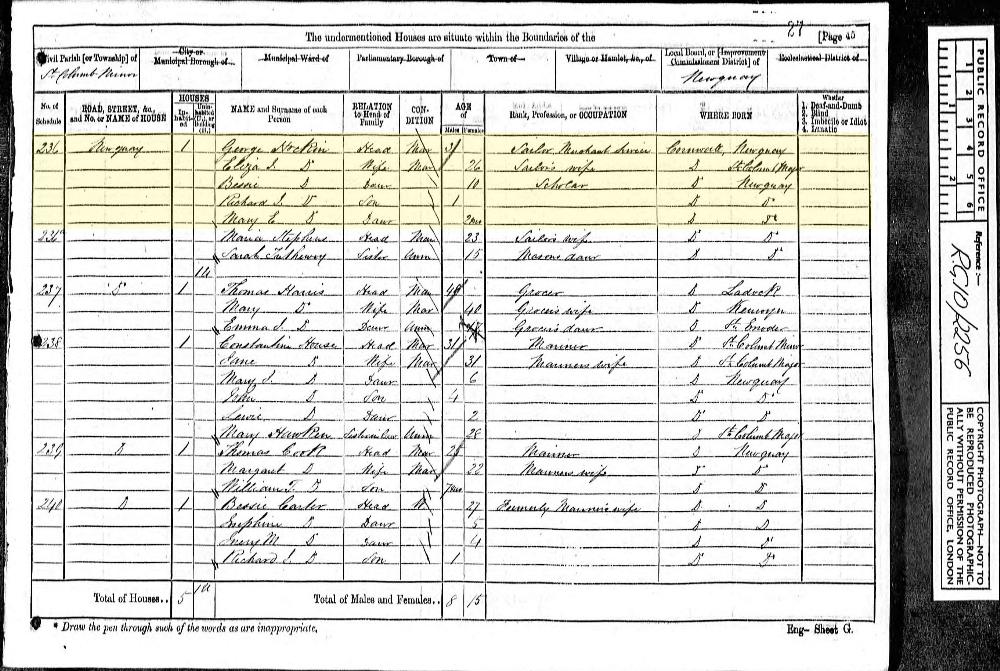 27 [Page 45
The undermentioned Houses are situate within the Boundaries of the
Civil Parish [or Township] of
City or Municipal Borough of
Municipal Ward of
Parliamentary Borough of
Town of
Village or Hamlet, &c., of
Local Board, or [Improvement Commissioners District] of
Ecclesiastical District of
St Columb Minor
Newquay
No. of Schedule
ROAD, STREET, &c., and No. or NAME of HOUSE
HOUSES
In-habited
Uninhabited (U.), or Building (B.)
NAME and Surname of each Person
RELATION to Head of Family
CONDITION
AGE of
Males
Females
Rank, Profession, or OCCUPATION
WHERE BORN
Whether
1. Deaf-and-Dumb
2. Blind
3. Imbecile or Idiot
4. Lunatic
236 Newquay 1 George Hockin Head Mar 31 Sailor Merchant Service Cornwall, Newquay
Eliza J. D Wife Mar 26 Sailor's wife D St Columb Major
Bessie D Daur 10 Scholar D Newquay
Richard J. D Son 1 D D
Mary E. D Daur 2mo D Do
236a Maria Stephens Head Mar 23 Sailor's wife D D
Sarah Sister Unm 15 Masons daur D D
1U
237 D 1 Thomas Harris Head Mar 48 Grocer D Ladock
Mary D Wife Mar 40 Grocers wife D Kenwyn
Emma J. D Daur Unm Grocers daur D St Enoder
238 1 Constantine House Head Mar 31 Mariner D St Columb Minor
Jane D Wife Mar 31 Mariners wife D St Columb Major
Mary J. D Daur 6 D Newquay
John D Son 4 D D
D Daur 2 D D
Mary Hawken Sister in law Unm 28 D St Columb Major
239 D 1 Thomas Cook Head Mar 25 Mariner D Newquay
Margaret D Wife Mar 22 Mariners wife D D
William T. D Son 7mo D D
240 D 1 Bessie Carter Head W 27 Formerly Mariner's wife D D
Josephine D Daur 5 D D
M. D Daur 4 D D
Richard J. D Son 1 D D
Total of Houses.. 5 1U Total of Males and Females.. 8 15
* Draw the pen through such of the words as are inappropriate.
Eng- Sheet G.
PUBLIC RECORD OFFICE
1 2 3 4 5 6
1 2
Reference :-
RG10/2256
COPYRIGHT PHOTOGRAPH—NOT TO BE REPRODUCED PHOTOGRAPHICALLY WITHOUT PERMISSION OF THE PUBLIC RECORD OFFICE, LONDON